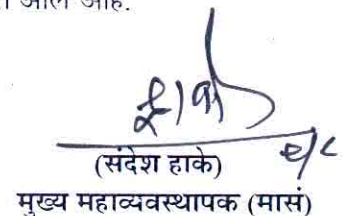 आले आहे.
(संदेश हाके)
मुख्य महाव्यवस्थापक (मासं)